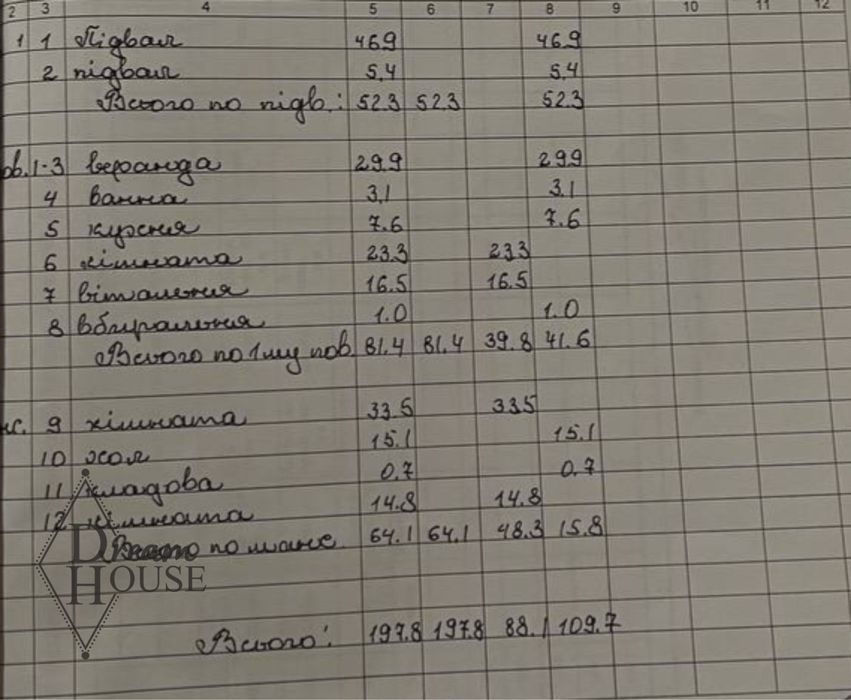 2 3 4 5 6 7 8 9 10 11 12
1 1 Підвал 46.9 46.9
2 підвал 5,4 5.4
Всього по підв.: 52.3 52.3 52.3
ов. 1-3 веранда 29.9 29.9
4 ванна 3,1 3.1
5 кухня 7.6 7.6
6 кімната 23.3 23.3
7 вітальня 16.5 16.5
8 вбиральня 1.0 1.0
Всього по 1му пов. 81.4 81.4 39.8 41.6
нс. 9 кімната 33.5 33.5
10 хол 15.1 15.1
11 кладова 0.7 0.7
12 кімната 14.8 14.8
Всього по манс. 64.1 64.1 48.3 15.8
D
HOUSE
Всього: 197.8 197.8 88.1 109.7